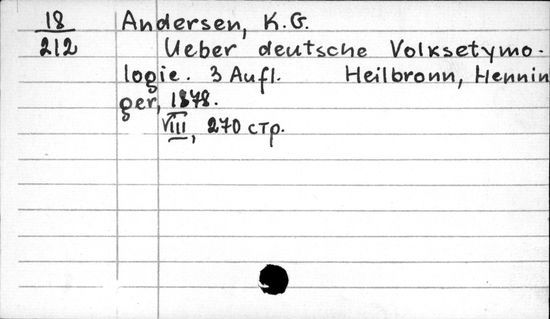 18 Andersen, K.G.
212 Ueber deutsche Volksetymo-
logie. 3 Aufl. Heilbronn, Hennin
ger, 1878.
VIII, 270 стр.